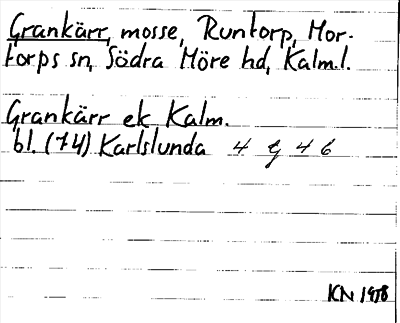 Grankärr, mosse, Runtorp, Mor-
torps sn, Södra Möre hd, Kalm.l.
Grankärr ek Kalm.
bl. (74) Karlslunda 4 g 4 6
KN 1978